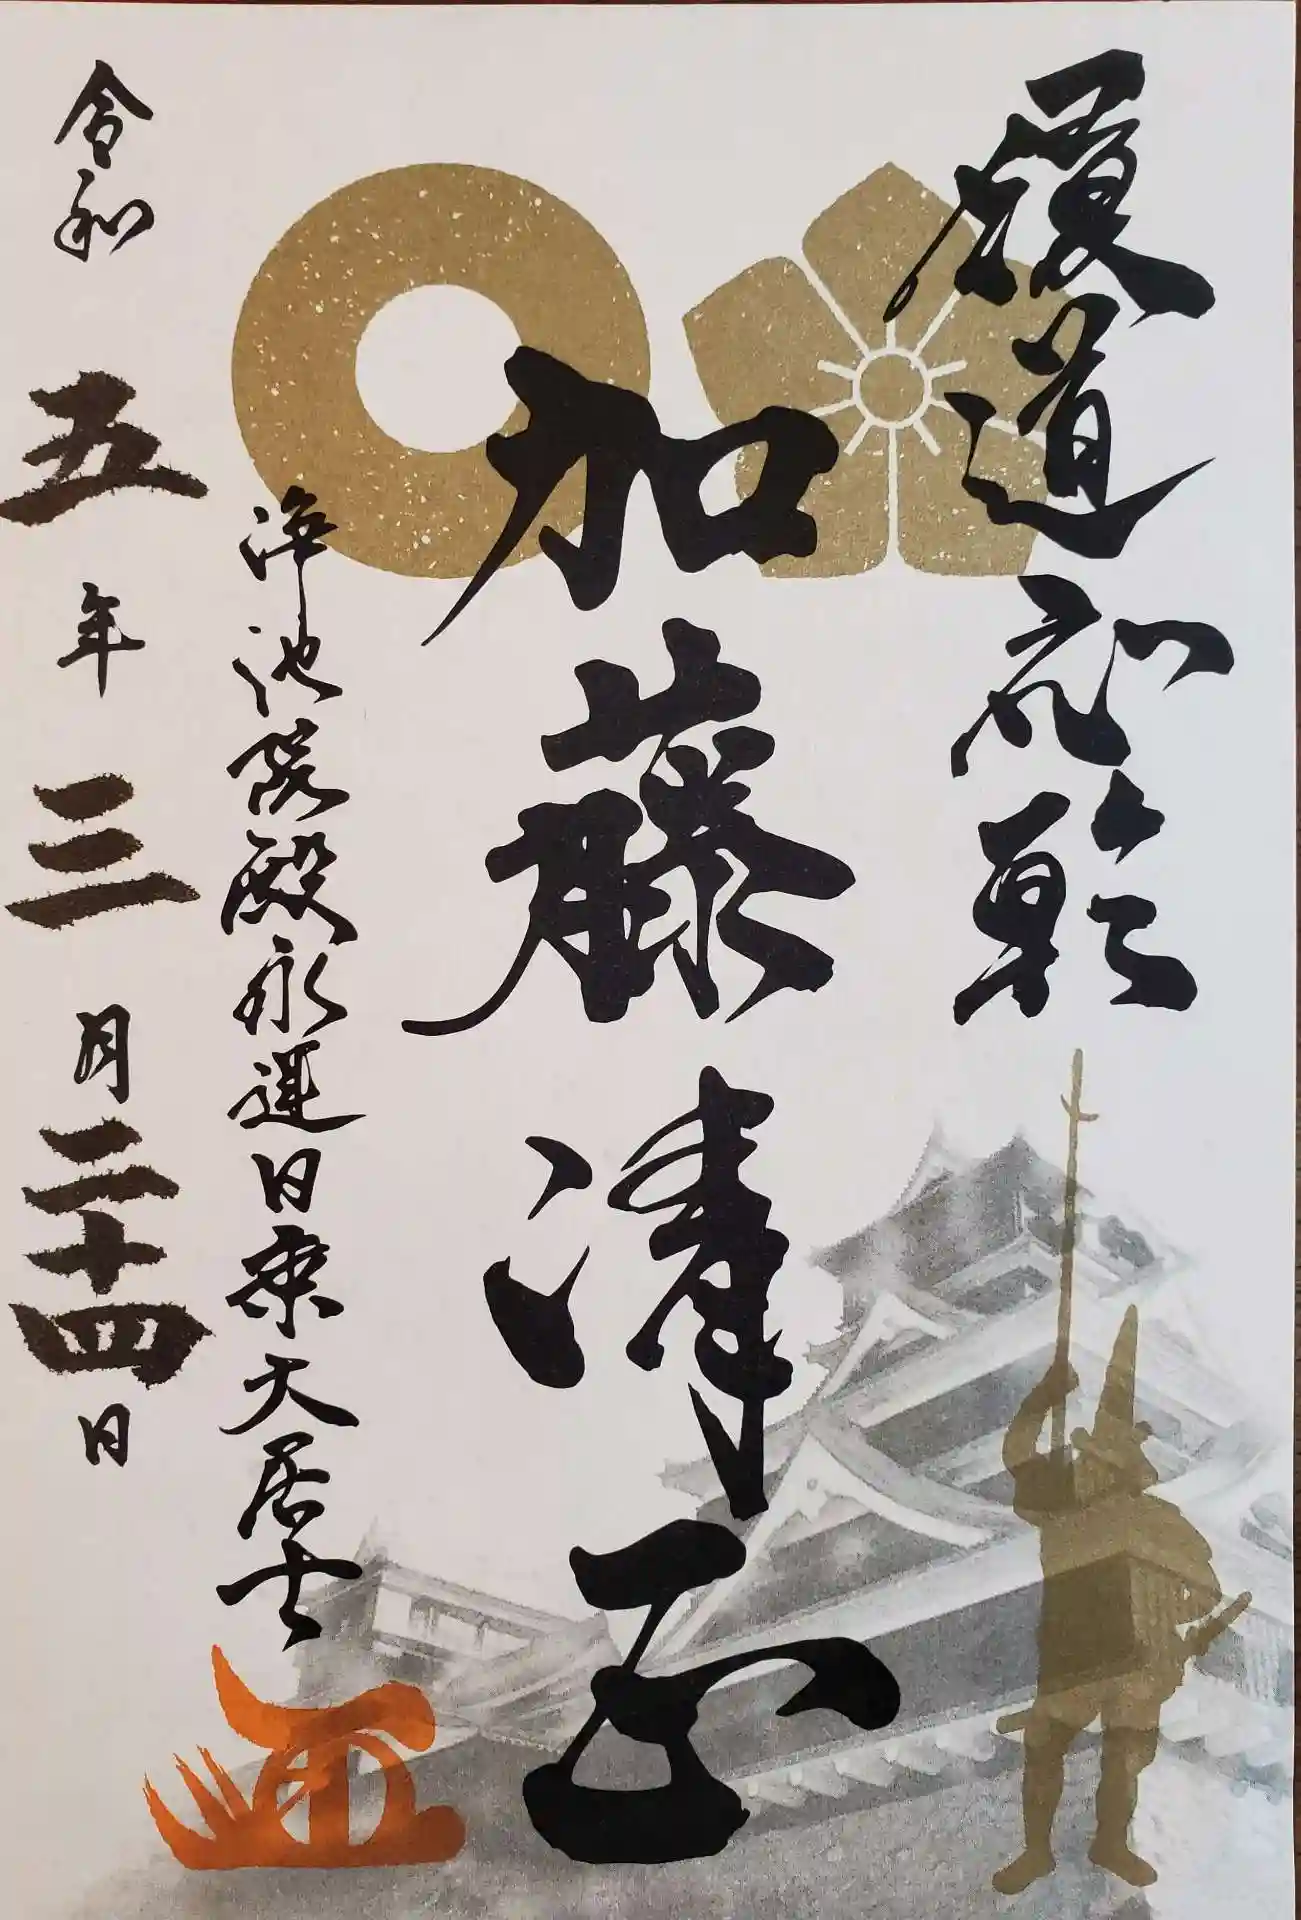 履道應乾
加藤清正
浄池院殿永運日乘大居士
令和五年三月二十四日